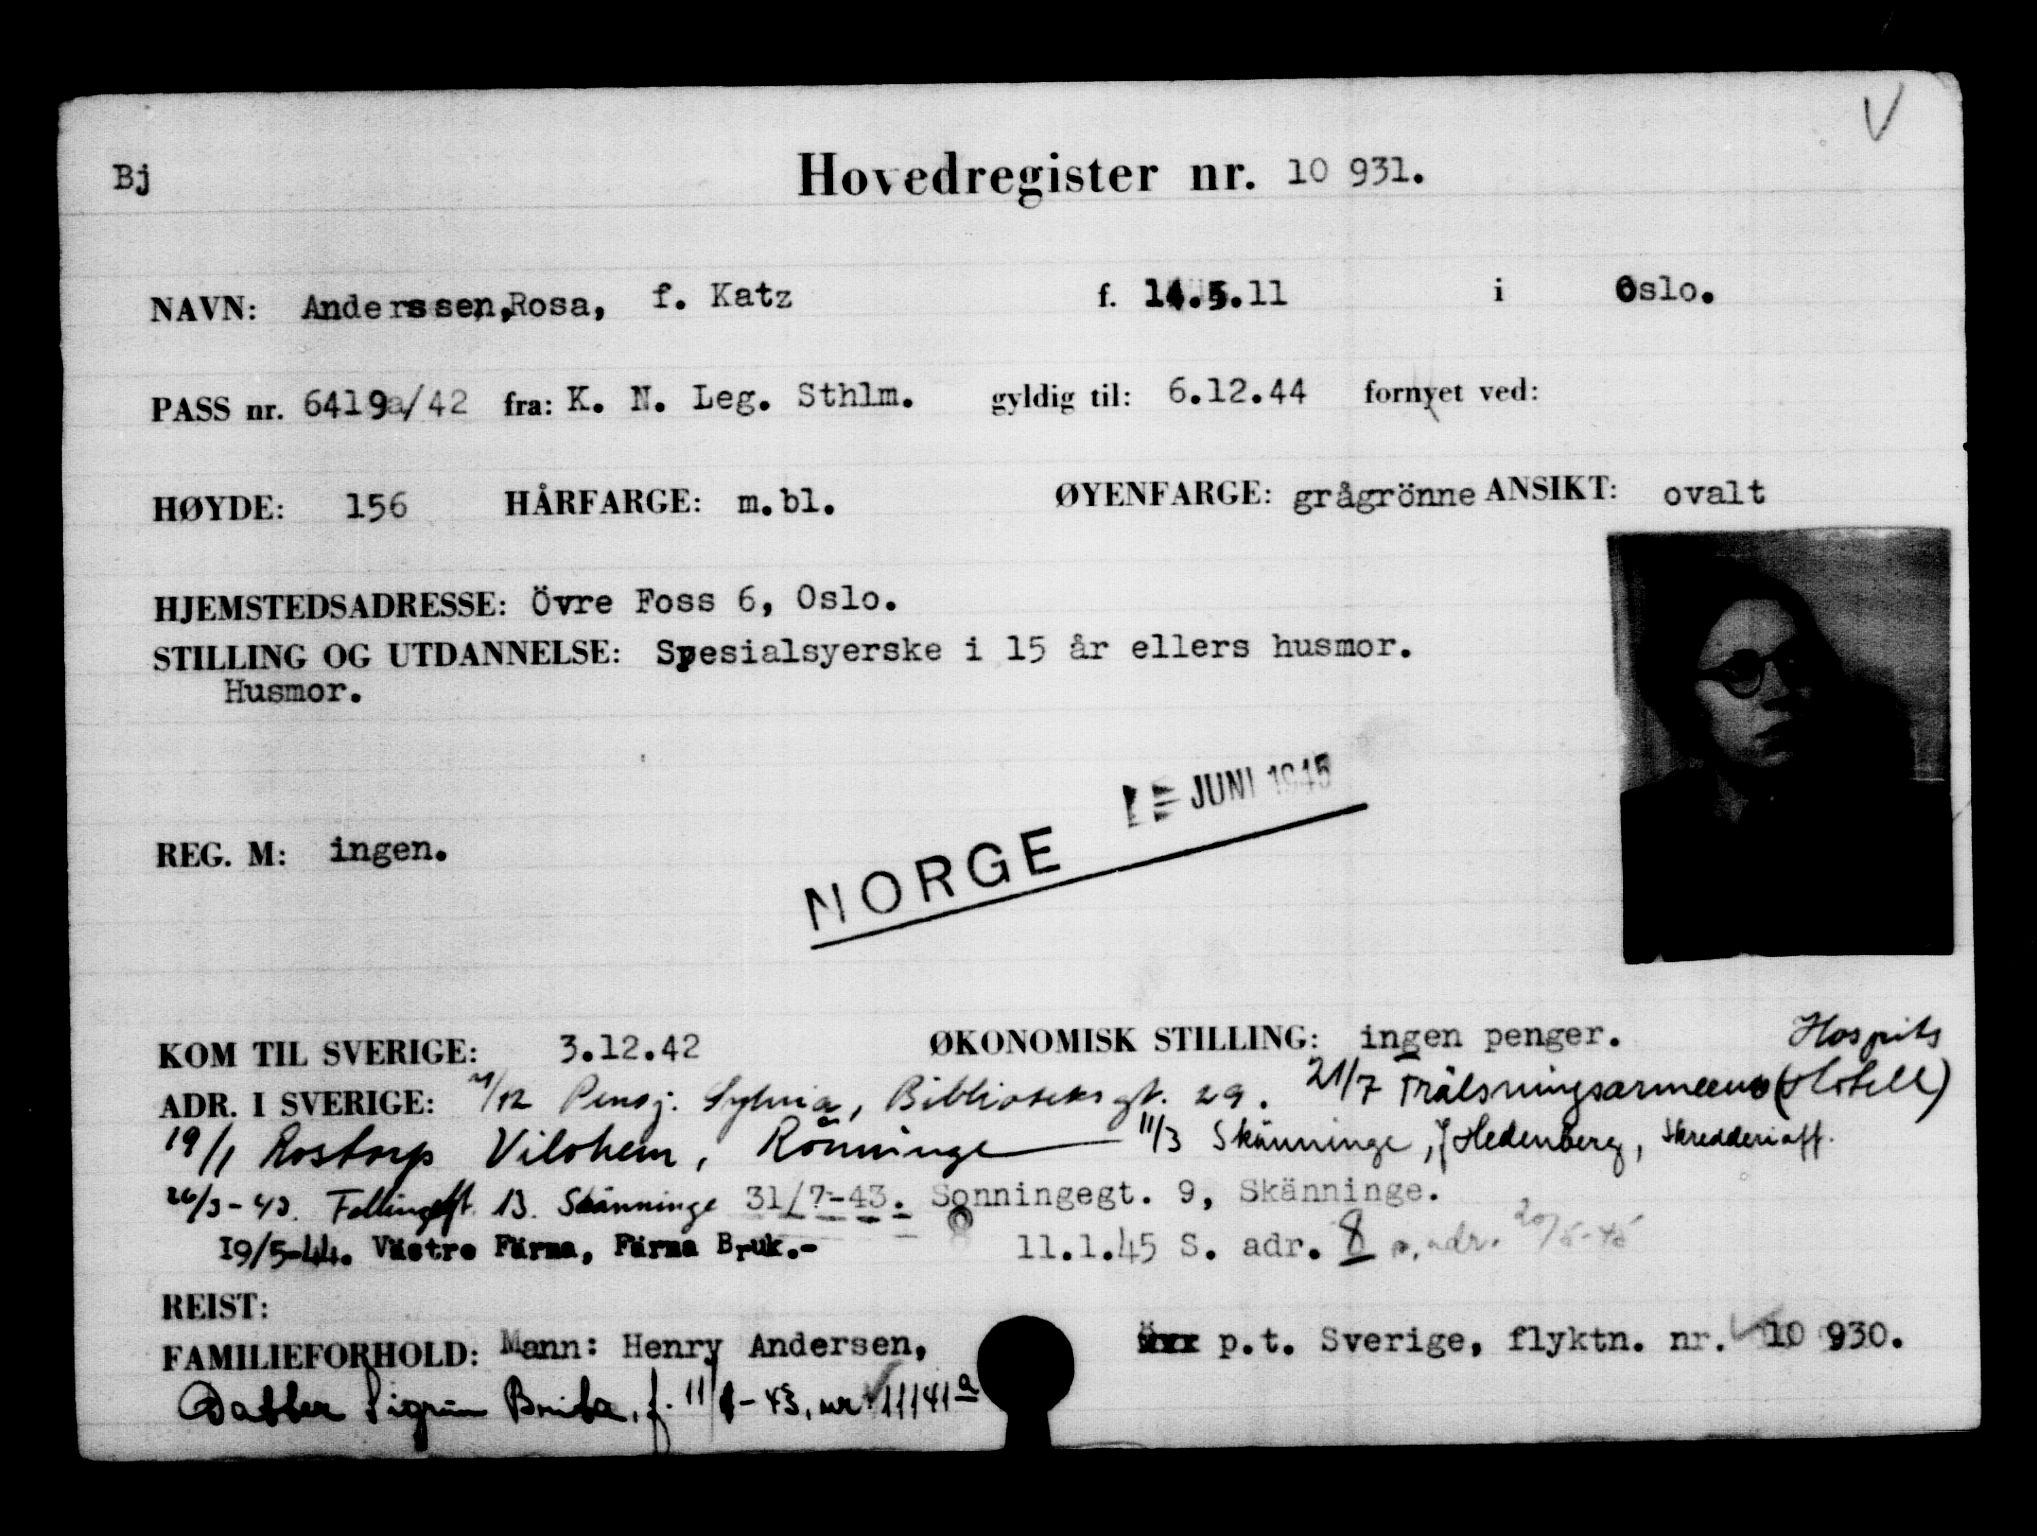 V
Bj Hovedregister nr. 10 931.
NAVN: Anderssen, Rosa, f. Katz f. 14.5.11 i Oslo.
PASS nr. 6419a/42 fra: K. N. Leg. Sthlm. gyldig til: 6.12.44 fornyet ved:
HØYDE: 156 HÅRFARGE: m.bl. ØYENFARGE: grågrönne ANSIKT: ovalt
HJEMSTEDSADRESSE: Övre Foss 6, Oslo.
STILLING OG UTDANNELSE: Spesialsyerske i 15 år ellers husmor.
Husmor.
JUNI 1945
NORGE
REG. M: ingen.
KOM TIL SVERIGE: 3.12.42 ØKONOMISK STILLING: ingen penger. Hospits
ADR. I SVERIGE: /12 Pensj. Sylvia, Biblioteksgt. 29. 21/7 Frälsningsarmeens (Hotell)
19/1 Rostorp Vilohem, Rönninge 11/3 Skänninge, Hedenberg, Skredderiaff.
26/3-43. 13. Skänninge 31/7-43. Sonningegt. 9, Skänninge.
19/5-44. Västra Färna, Färna Bruk.- 11.1.45 S. adr. 8 adr. 20/5-45
REIST:
FAMILIEFORHOLD: Mann: Henry Andersen, p.t. Sverige, flyktn. nr. 10 930.
Datter Sigrun Brita, f. 11/ -43, nr. 11141a